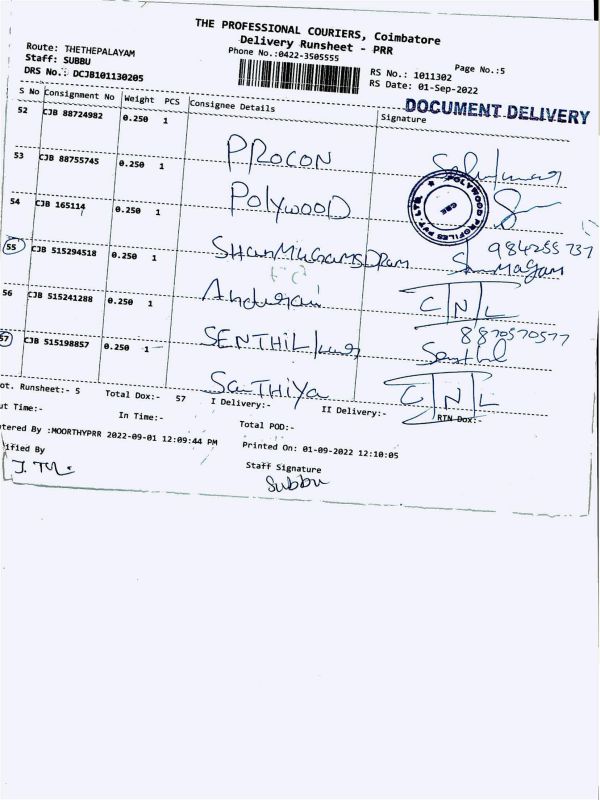 THE PROFESSIONAL COURIERS, Coimbatore
Delivery Runsheet - PRR
Phone No.:0422-3505555
Route: THETHEPALAYAM
Staff: SUBBU
DRS No.: DCJB101130205
Page No.:5
RS No.: 1011302
RS Date: 01-Sep-2022
DOCUMENT DELIVERY
S No Consignment No Weight PCS Consignee Details Signature
52 CJB 88724982 0.250 1 PROCON
53 CJB 88755745 0.250 1 POLYWOOD
POLYWOOD PROFILES PVT. LTD. CBE
54 CJB 165114 0.250 1
984255737
55 CJB 515294518 0.250 1
56 CJB 515241288 0.250 1 CNL
8870570577
57 CJB 515198857 0.250 1 SENTHIL Senthil
SANTHIYA CNL
ot. Runsheet:- 5 Total Dox:- 57 I Delivery:- II Delivery:- RTN Dox:-
ut Time:- In Time:- Total POD:-
tered By :MOORTHYPRR 2022-09-01 12:09:44 PM Printed On: 01-09-2022 12:10:05
ified By Staff Signature
Subbu